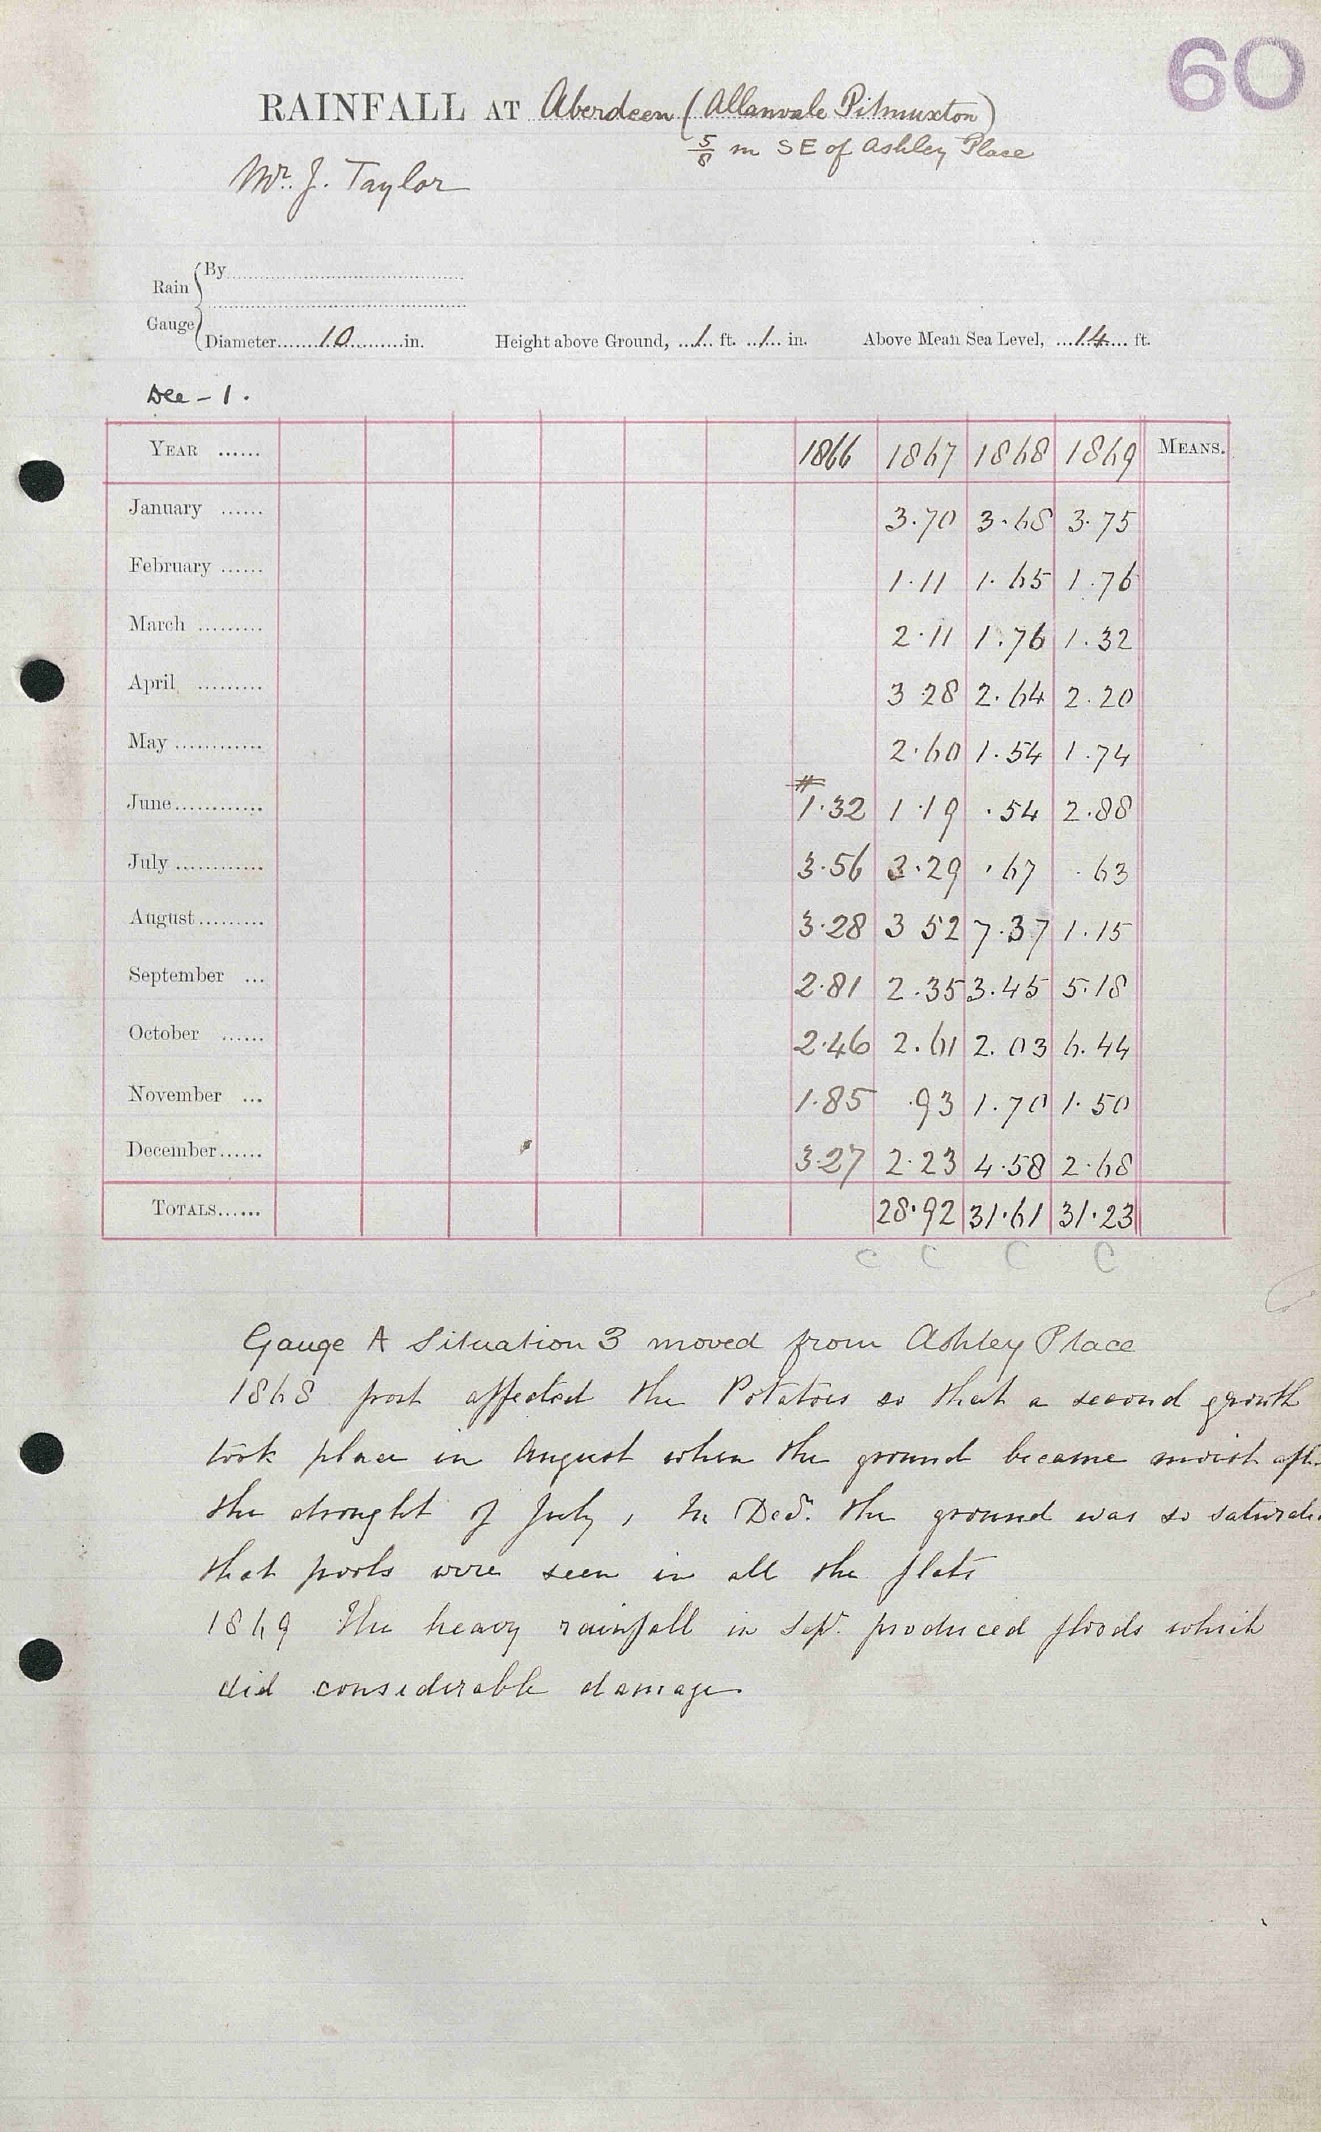 60
RAINFALL AT Aberdeen (Allanvale Pitmuxton)
5/8 m SE of Ashley Place
Mr. J. Taylor
Rain Gauge { By
Diameter 10 in. Height above Ground, 1 ft. 1 in. Above Mean Sea Level, 14 ft.
Dee - 1.
YEAR 1866 1867 1868 1869 MEANS.
January 3.70 3.68 3.75
February 1.11 1.65 1.76
March 2.11 1.76 1.32
April 3 28 2.64 2.20
May 2.60 1.54 1.74
June 1.32 1.19 .54 2.88
July 3.56 3.29 .67 .63
August 3.28 3 52 7.37 1.15
September 2.81 2.35 3.45 5.18
October 2.46 2.61 2.03 6.44
November 1.85 .93 1.70 1.50
December 3.27 2.23 4.58 2.68
TOTALS 28.92 31.61 31.23
C C C C
Gauge A Situation 3 moved from Ashley Place
1868 frost affected the Potatoes so that a second growth
took place in August when the ground became moist after
the drought of July, In Decr. the ground was so saturated
that pools were seen in all the flats
1869 The heavy rainfall in Sepr. produced floods which
did considerable damage